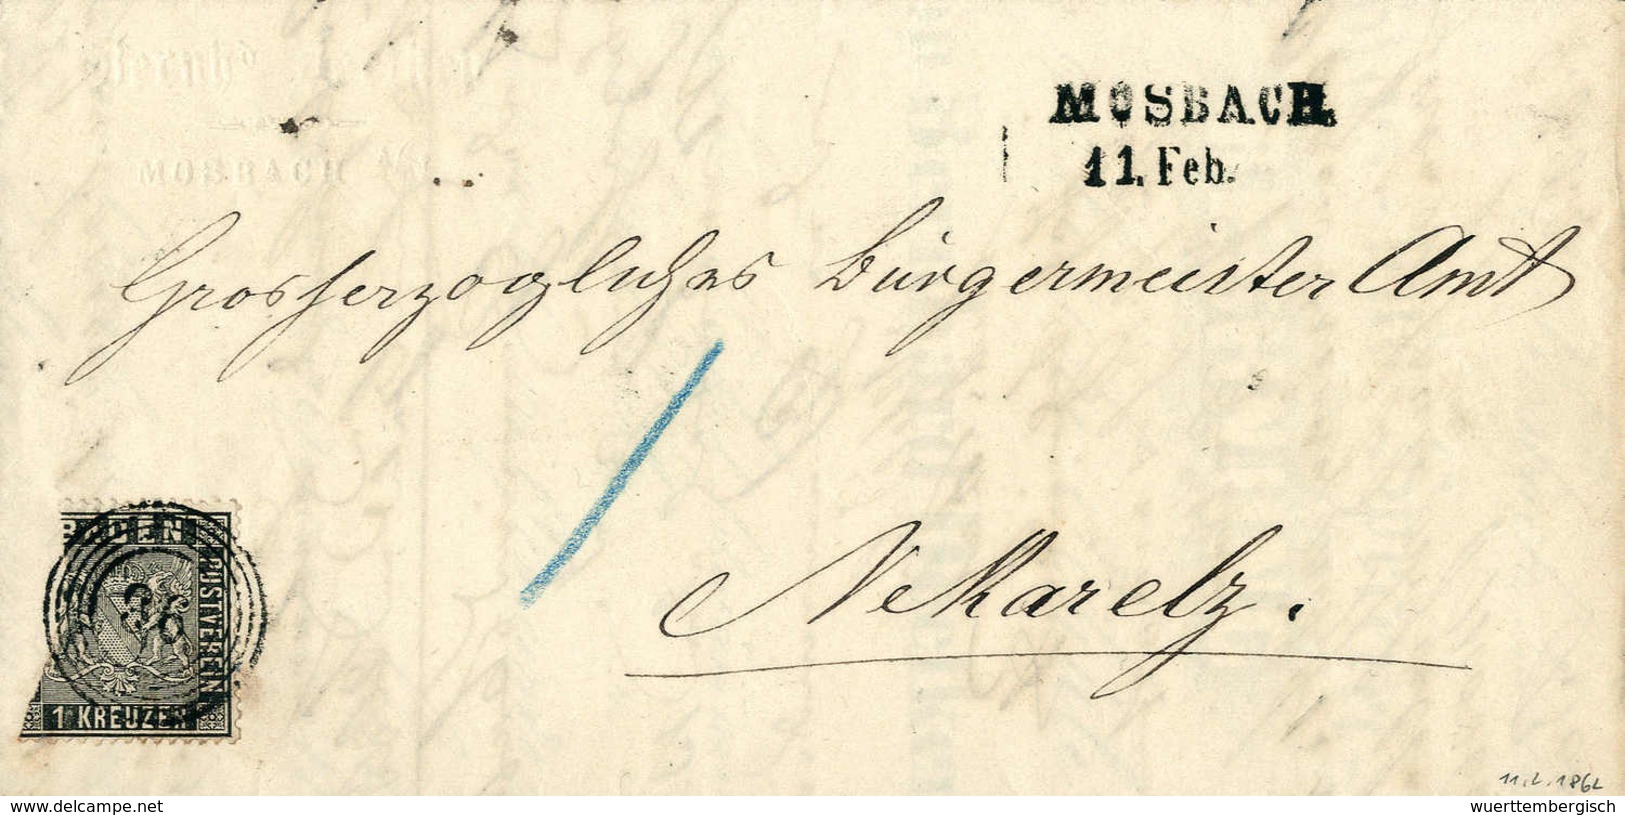 MOSBACH.
11. Feb.
MOSBACH
Grosherzogliches Bürgermeister Amt
Nekarelz.
BADEN
POSTVEREIN
36
1 KREUZER
11.2.1862
© www.delcampe.net
wuerttembergisch